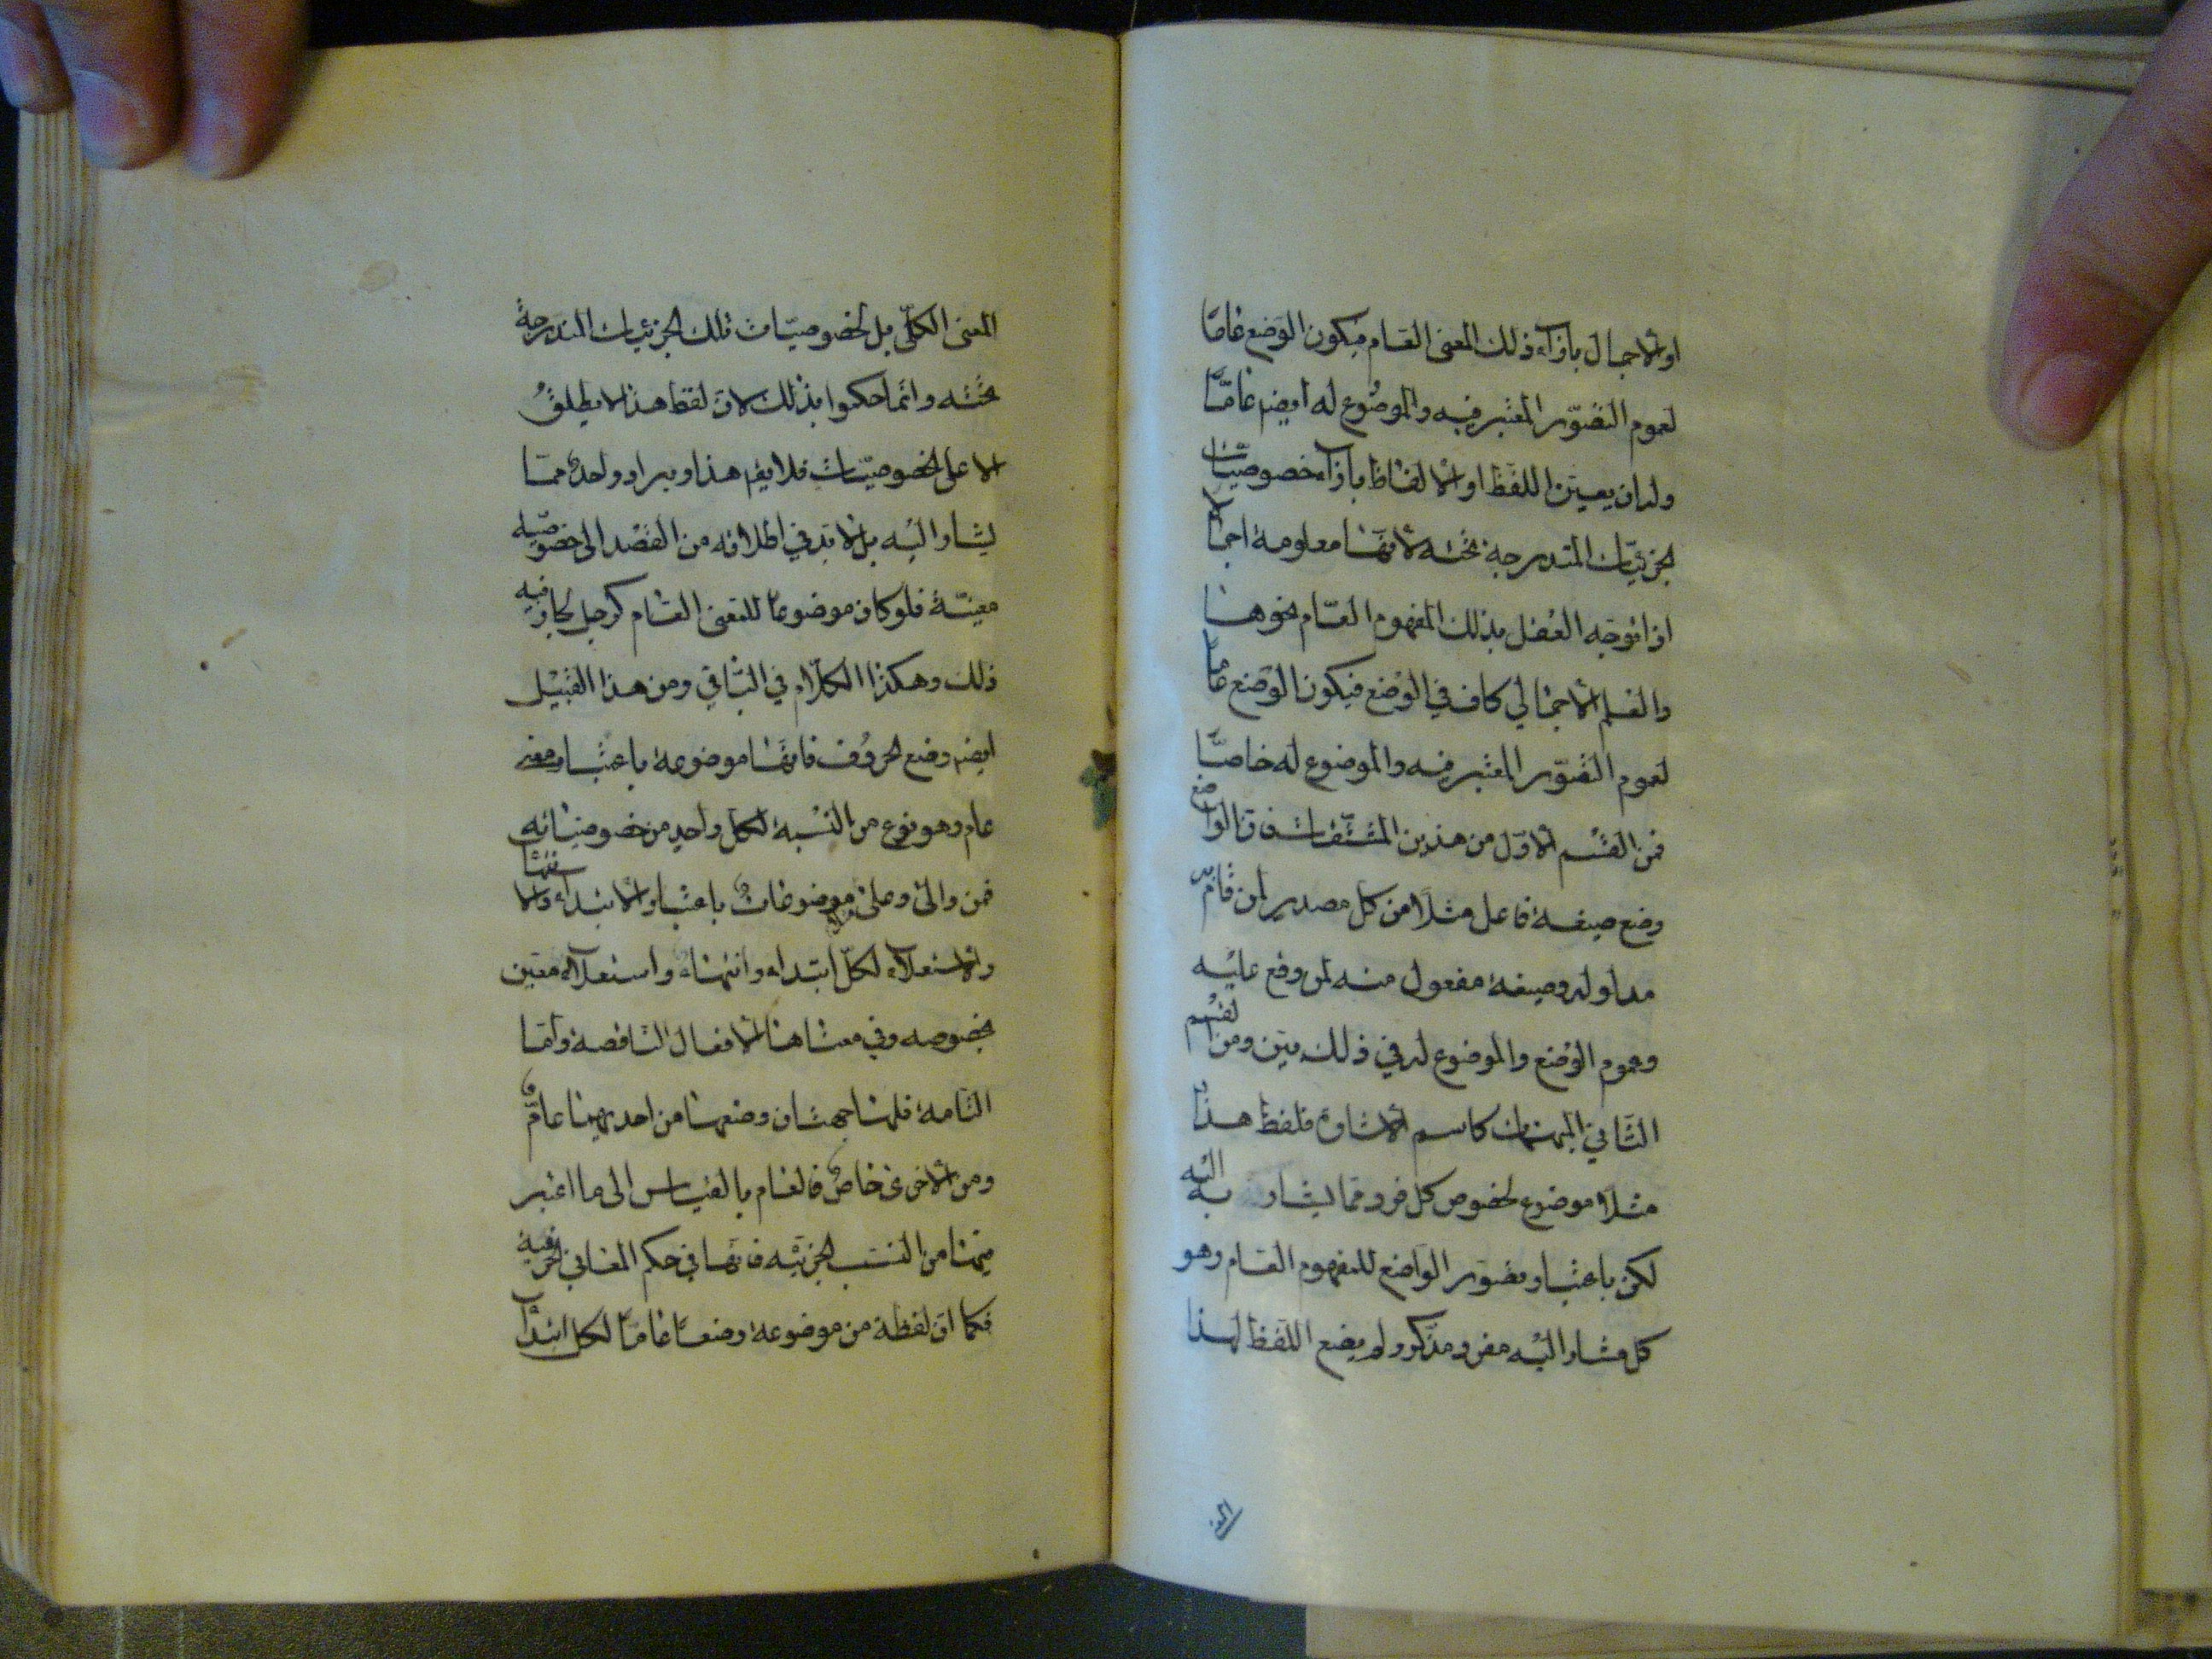 او الاجمال بازآء ذلك المعنى العام فيكون الوضع عامّا
لعموم التصوّر المعتبر فيه والموضوع له ايضا عامّا
وله ان يعيّن اللفظ او الالفاظ بازآء خصوصيّات
الجزئيّات المندرجة تحته لانّها معلومة اجمالا
اذا توجه العقل بذلك المفهوم العام نحوها
والعلم الاجمالي كاف في الوضع فيكون الوضع عامّا
لعموم التصوّر المعتبر فيه والموضوع له خاصّا
فمن القسم الاوّل من هذين المشتقات فانّ الواضع
وضع صيغة فاعل مثلا من كل مصدر لمن قام به
مدلوله وصيغة مفعول منه لمن وقع عليه
وعموم الوضع والموضوع له في ذلك بيّن ومن القسم
الثاني المبهمات كاسم الاشارة فلفظ هذا
مثلا موضوع لخصوص كل فرد مما يشار به اليه
لكن باعتبار تصوّر الواضع للمفهوم العام وهو
كل مشار اليه مفرد مذكر ولم يضع اللفظ لهذا
المعنى
المعنى الكلّي بل لخصوصيّات تلك الجزئيات المندرجة
تحته وانّما حكموا بذلك لانّ لفظ هذا لا يطلق
الا على الخصوصيّات فلا يقم هذا ويراد واحد ممّا
يشار اليه بل لا بد في اطلاقه من القصد الى خصوصيّة
معيّنة فلو كان موضوعا للمعنى العام كرجل لجاز فيه
ذلك وهكذا الكلام في الباقي ومن هذا القبيل
ايضا وضع الحروف فانّها موضوعة باعتبار معنى
عام وهو نوع من النسبة لكل واحد من خصوصياته
فمن والى وعلى موضوعات باعتبار الابتداء والانتهاء
والاستعلاء لكلّ ابتداء وانتهاء واستعلاء معيّن
بخصوصه وفي معناها الافعال الناقصة وامّا
التامة فلها جهتان وضعها من احديهما عامّ و
ومن الاخرى خاص فالعام بالقياس الى ما اعتبر
فيها من النسب الجزئيّة فانّها في حكم المعاني الحرفية
فكما انّ لفظة من موضوعة وضعا عامّا لكل ابتداء